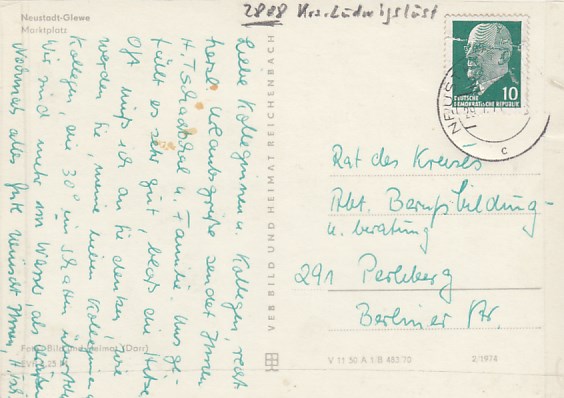 Neustadt-Glewe
Marktplatz
2808 Krs. Ludwigslust
10
DEUTSCHE
DEMOKRATISCHE REPUBLIK
c
Liebe Kolleginnen u. Kollegen, recht
herzl. Urlaubsgrüße sendet Ihnen
H. u. Familie. Uns ge-
fällt es sehr gut, bloß die Hitze
Oft muß ich an Sie denken, wie
werden Sie, meine lieben Kolleginnen u.
Kollegen, die 30° im Schatten
Wir sind mehr im Wasser, als
Nochmals alles Gute wünscht Ihnen, H.
VEB BILD UND HEIMAT REICHENBACH
Rat des Kreises
Abt. Berufsbildung-
u. beratung
291 Perleberg
Berliner Str.
Foto: Bild und Heimat (Darr)
V 11 50 A 1/B 453/70
2/1974